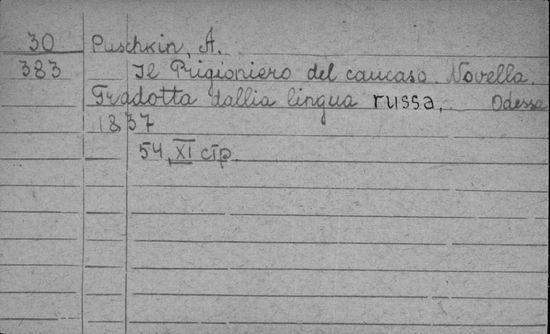 30 Puschkin, A.
383 Il Prigioniero del caucaso. Novella.
Tradotta dallia lingua russa. Odessa
1837
54, XI стр.